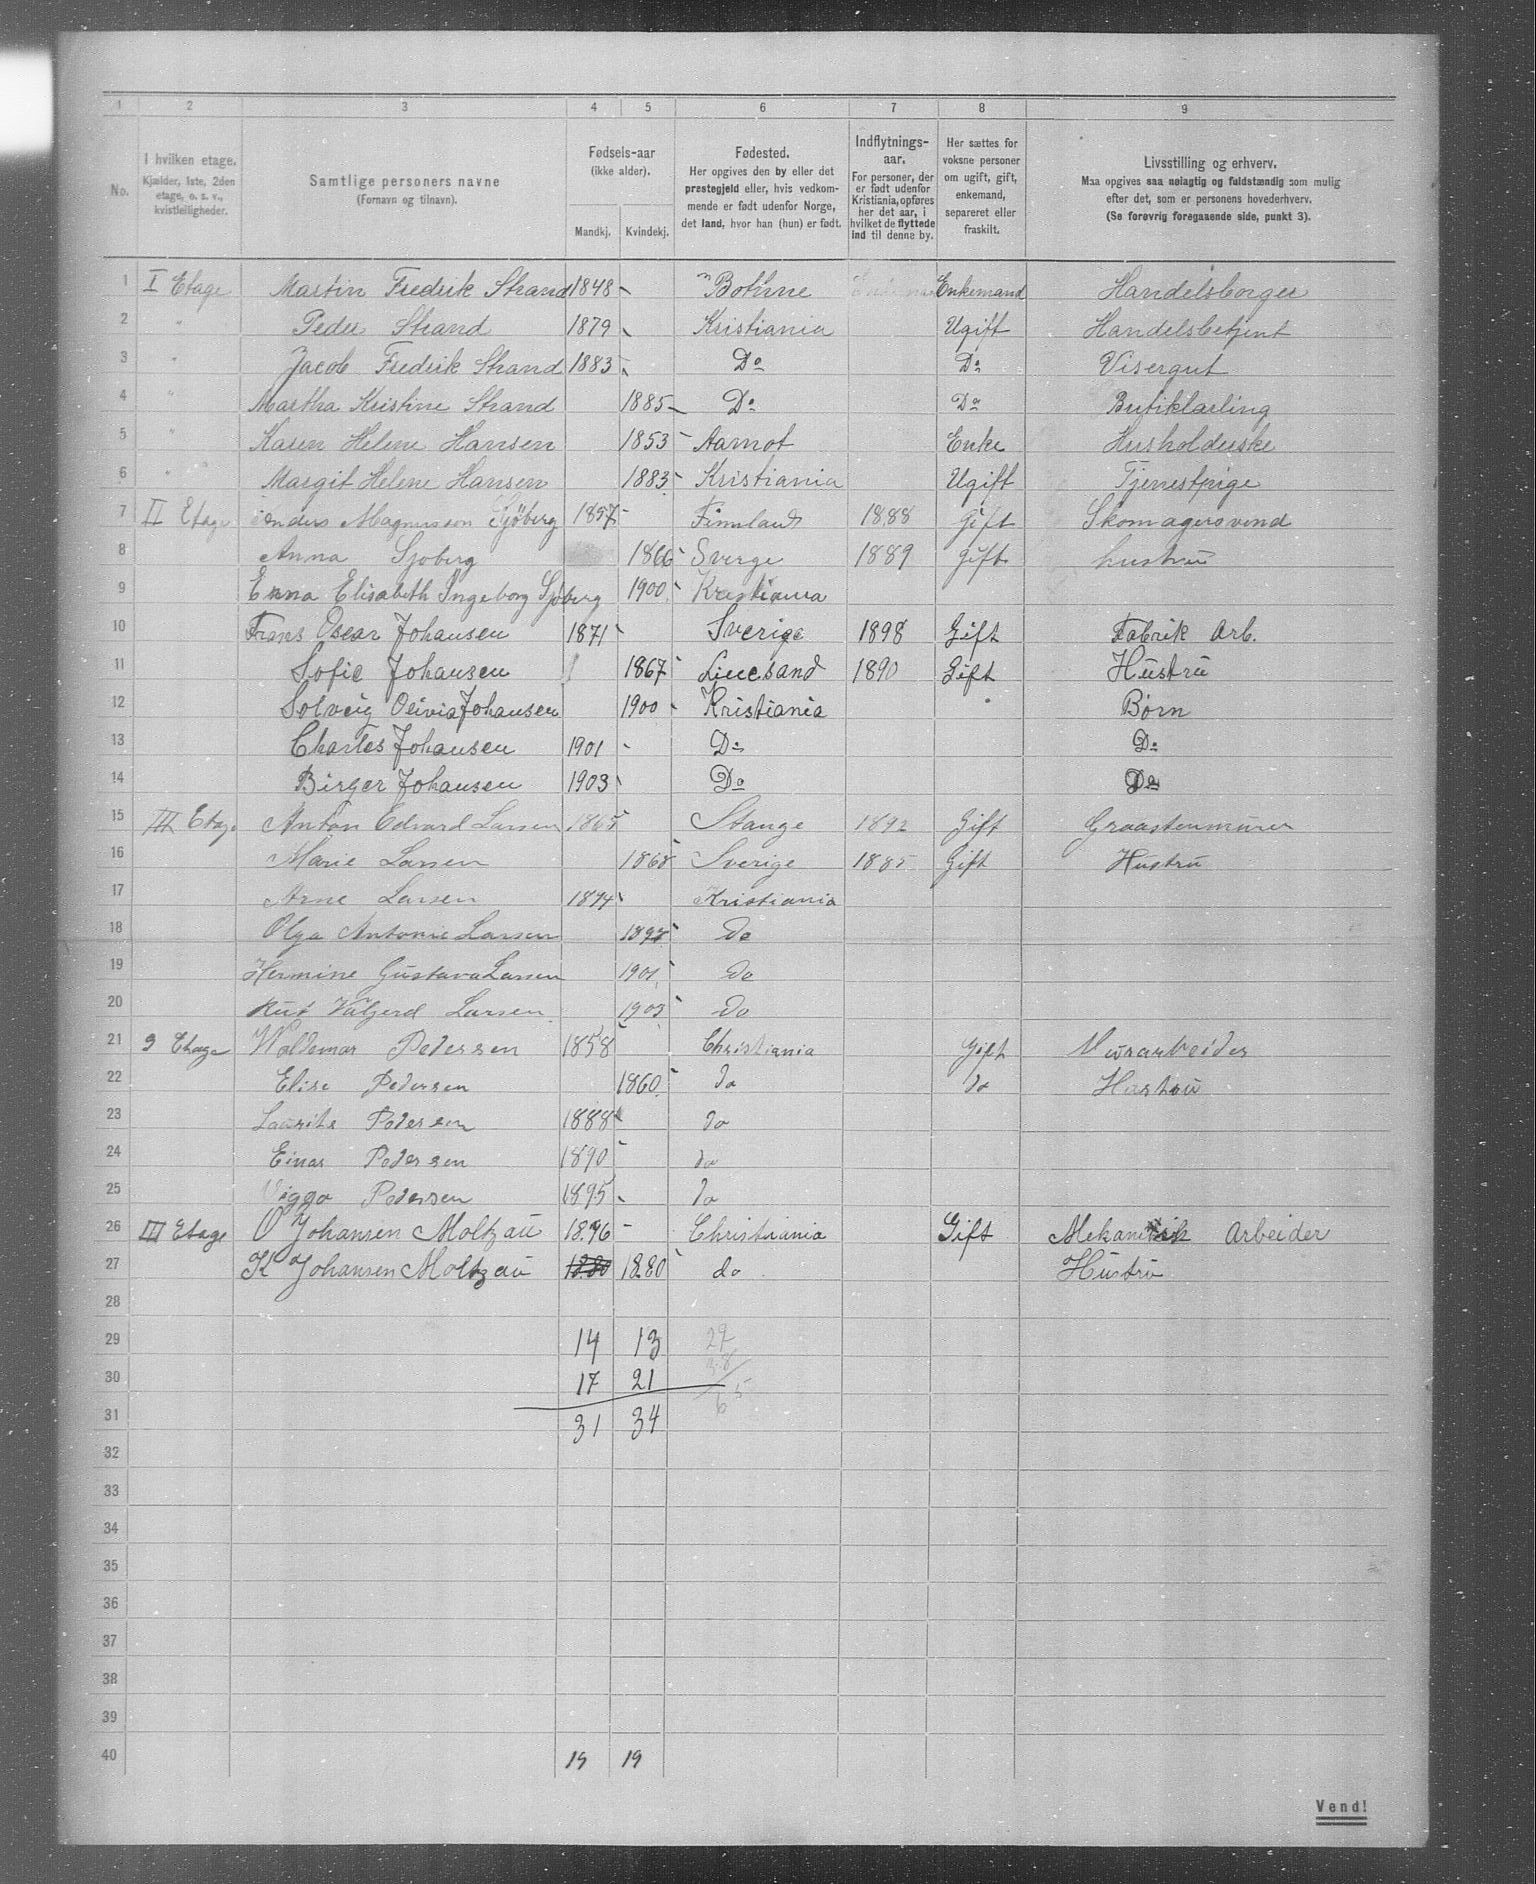 1 2 3 4 5 6 7 8 9
No. I hvilken etage. Kjælder, 1ste, 2den etage, o. s. v., kvistleiligheder. Samtlige personers navne (Fornavn og tilnavn). Fødsels-aar (ikke alder). Mandkj. Kvindekj. Fødested. Her opgives den by eller det prestegjeld eller, hvis vedkommende er født udenfor Norge, det land, hvor han (hun) er født. Indflytnings-aar. For personer, der er født udenfor Kristiania, opføres her det aar, i hvilket de flyttede ind til denne by. Her sættes for voksne personer om ugift, gift, enkemand, separeret eller fraskilt. Livsstilling og erhverv. Maa opgives saa nøiagtig og fuldstændig som mulig efter det, som er personens hovederhverv. (Se forøvrig foregaaende side, punkt 3).
1 I Etage Martin Fredrik Strand 1848 - Enkemand Handelsborger
2 " Peder Strand 1879 Kristiania Ugift Handelsbetjent
3 " Jacob Fredrik Strand 1883 Do Do Visergut
4 " Martha Kristine Strand 1885 Do Do Butiklærling
5 " Karen Helene Hansen 1853 Aamot Enke Husholderske
6 " " Margit Helene Hansen 1883 Kristiania Ugift Tjenestpige
7 II Etage Anders Magnusson Sjöberg 1857 Finnland 1888 Gift Skomagersvend
8 Anna Sjöberg 1866 Sverge 1889 gift hustru
9 Enna Elisabeth Ingeborg Sjöberg 1900 Kristiania
10 Frans Oscar Johansen 1871 Sverige 1898 Gift Fabrik Arb.
11 Sofie Johansen 1867 Lillesand 1890 Gift Hustru
12 Solveig Olivia Johansen 1900 Kristiania Børn
13 Charles Johansen 1901 Do Do
14 Birger Johansen 1903 Do Do
15 III Etage Anton Edvard Larsen 1865 Stange 1892 Gift Graastenmurer
16 Marie Larsen 1868 Sverige 1885 Gift Hustru
17 Arne Larsen 1894 Kristiania
18 Olga Antonie Larsen Do
19 Hermine Gustava Larsen 1901 Do
20 Rut Valgerd Larsen 1903 Do
21 3 Etage Woldemar Pedersen 1858 Christiania Gift Murarbeider
22 Elise Pedersen 1860 do do Hustru
23 Laurits Pedersen 1888 do
24 Einar Pedersen 1890 do
25 Viggo Pedersen 1895 do
26 III Etage O Johansen Moltzau Christiania Gift Mekanisk Arbeider
27 K Johansen Moltzau 1880 1880 do Hustru
28
29 14 13 27
30 17 21 38
31 31 34 65
32
33
34
35
36
37
38
39
40 19 19
Vend!